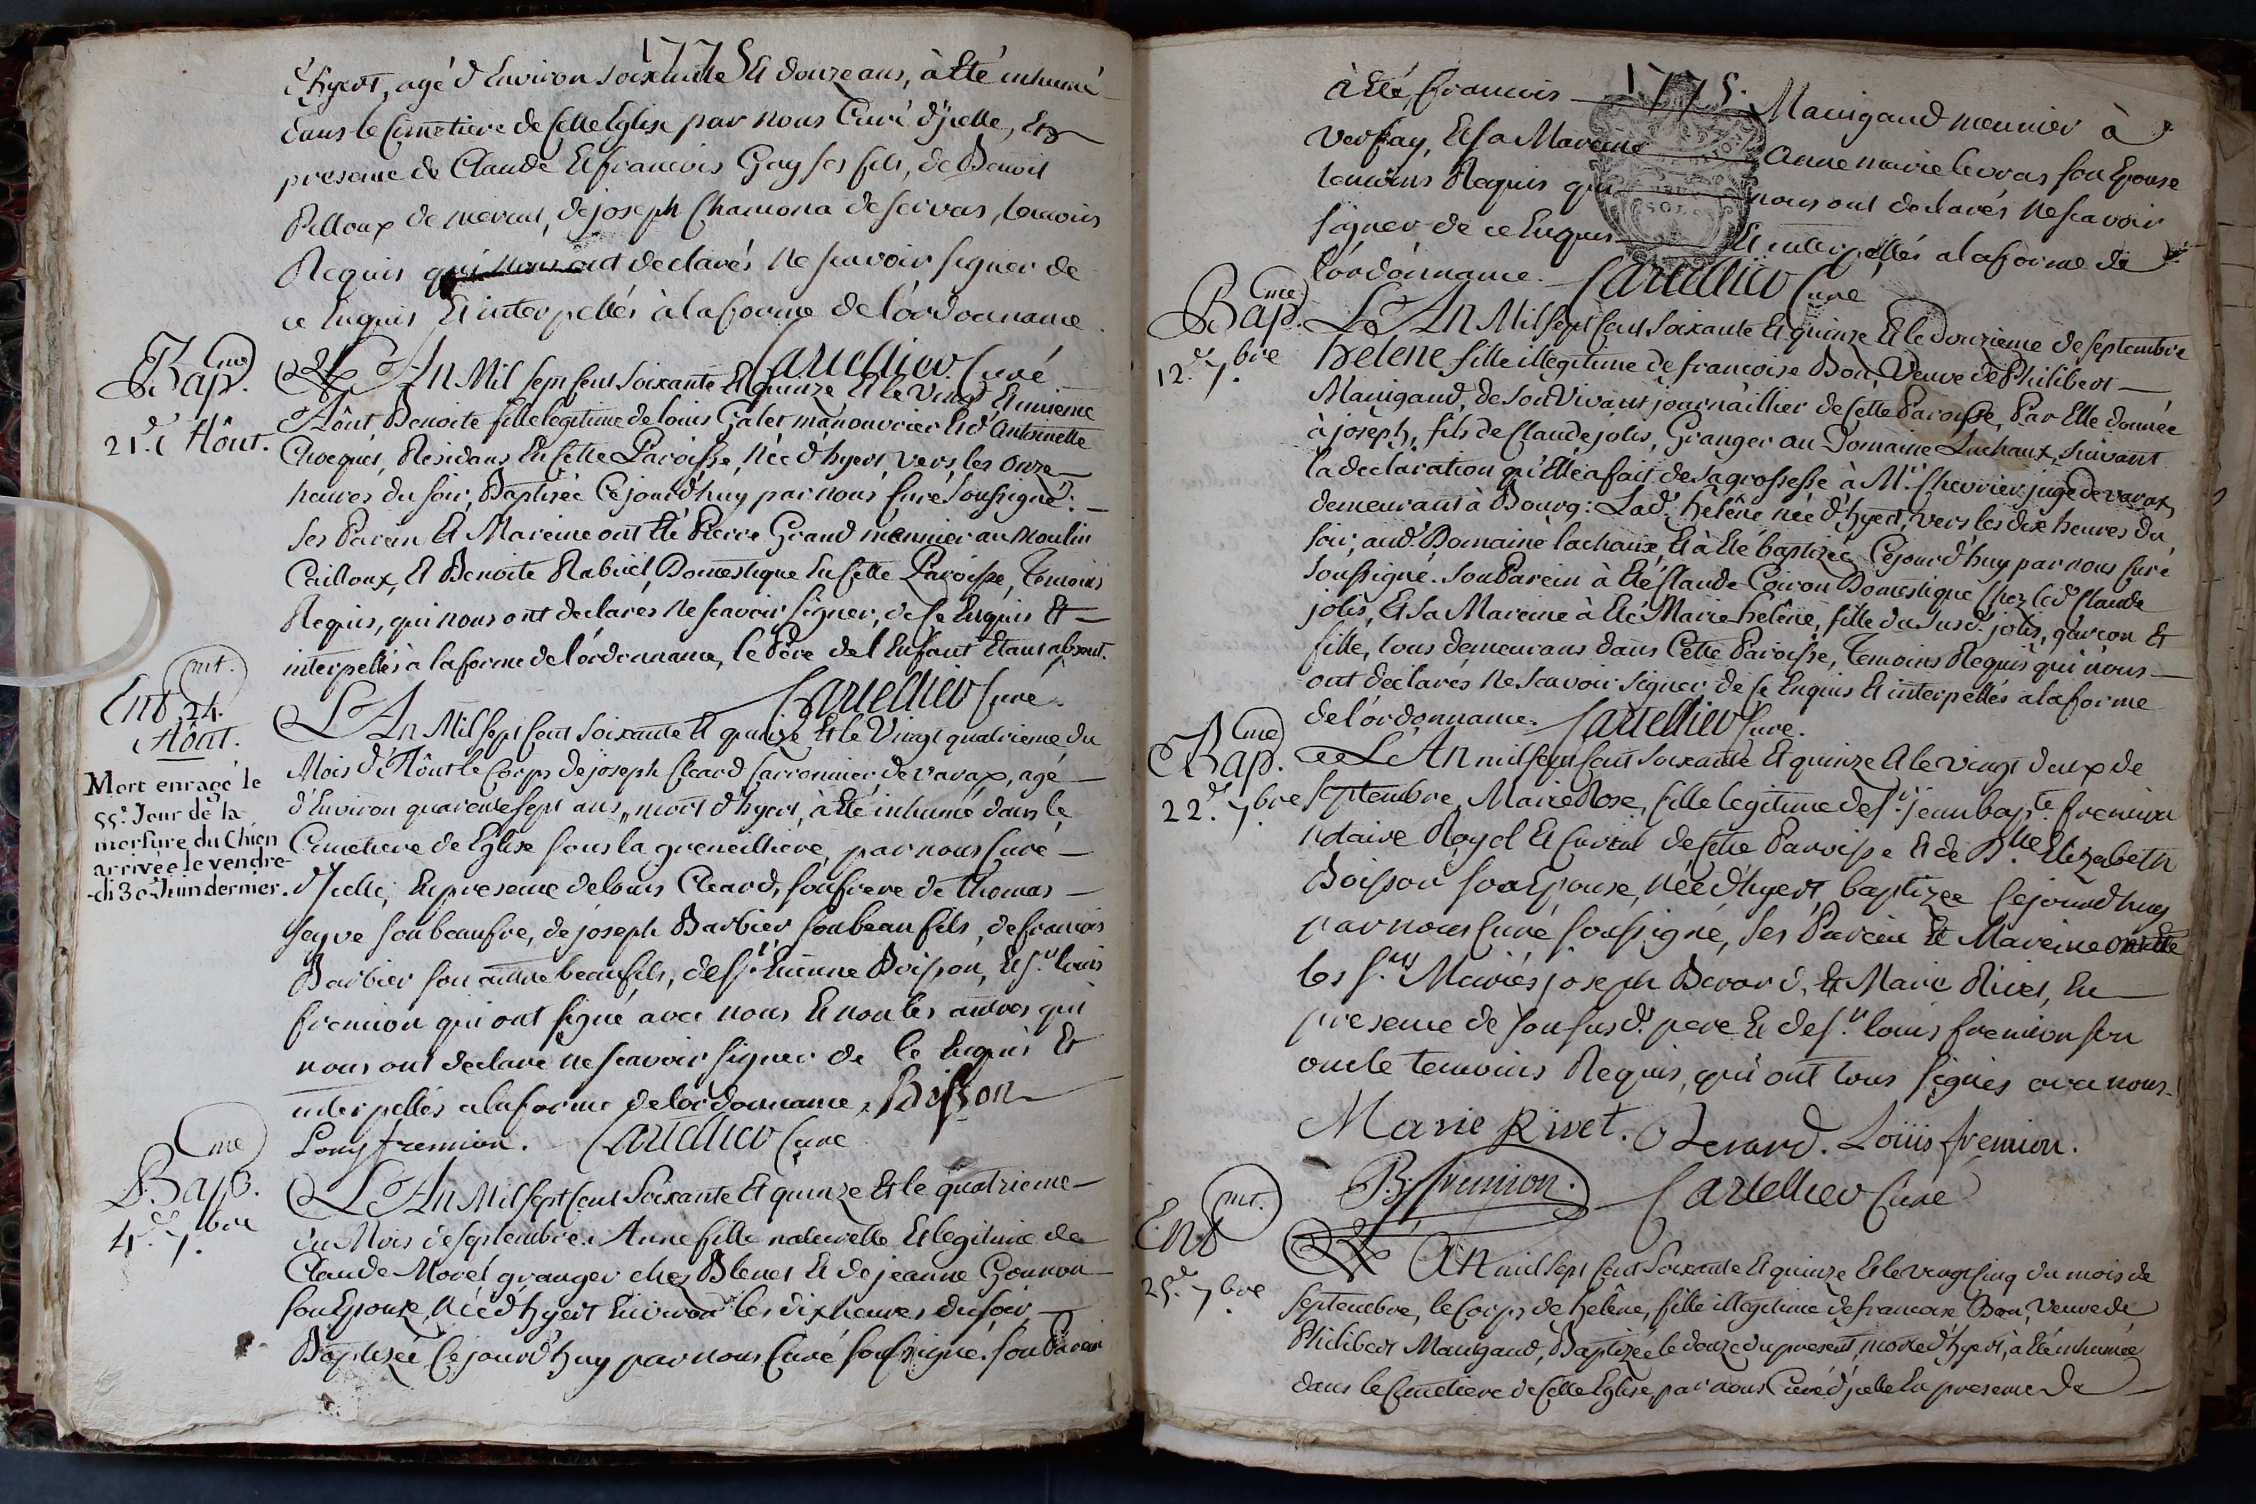 1775
d'hyert, agé d'Environ soixante Et douze ans, à Eté inhumé
dans le Cimetiere de Cette Eglise par nous Curé d'jcelle, En
presence de Claude Et francois Gay ses fils, de Benoit
Pilloux de nievent, de joseph Chamona de servas, temoins
Requis qui nous ont declarés ne scavoir signer de
ce Enquis Et interpellés à la forme de l'ordonnance.
Cartellier Curé
Bap.me
21.e d'Aôut.
L'An Mil sept Cent soixante Et quinze Et le Vingt Et unieme
d'Aôut Benoite fille legitime de louis Galet manouvrier Et d'Antoinette
Chocques, Residans En Cette Paroisse, Née d'hyert, vers les onze
heures du soir, Baptisée Cejourd'huy par nous Curé soussigné.
Ses Parein Et Mareine ont Eté Pierre Grand meunier au Moulin
Cailloux, Et Benoite Rabuel Domestique En Cette Paroisse, Temoins
Requis, qui nous ont declarés ne scavoir signer, de Ce Enquis Et
interpellés à la forme de l'ordonnance, le Pere de l'Enfant Etant absent.
Cartellier Curé.
Ent.mt
24.
Aôut.
L'An Mil sept Cent soixante Et quinze Et le Vingt quatrieme du
Mois d'Aôut le Corps de joseph Cleard Carronnier de varax, agé
d'Environ quarente sept ans, mort d'hyert, à Eté inhumé dans le
Cimetiere de Eglise sous la greneilliere, par nous Curé
d'jcelle, En presence de louis Cleard, son frere de thomas
seyve son beaufre, de joseph Barbier son beau fils, de francois
Barbier son autre beaufils, de sr. Etienne Boisson, Et sr. louis
fremion qui ont signé avec nous Et non les autres qui
nous ont declare ne scavoir signer de Ce Enquis Et
interpellés a la forme de lordonnance. Boisson
Louy fremion. Cartellier Curé
Mort enragé le
55.e Jour de la
morsure du Chien
arrivée le vendre-
-di 30 Juin dernier.
Bap.me
4.e 7.bre
L'An Mil sept Cent Soixante Et quinze Et le quatrieme
du Mois de septembre. Anne fille naturelle Et legitime de
Claude Morel granger chez Blenet Et de jeanne Gonnon
son Epouse, Née d'hyert Environ les dix heures du soir
Baptisée Cejourd'huy par nous Curé soussigné. son Parein
1775.
à Eté francois Manigand meunier à
Verfay, Et sa Mareine Anne marie levras son Epouse
temoins Requis qui nous ont declarés ne scavoir
signer de ce Enquis Et interpellés a la forme de
l'ordonnance. Cartellier Curé
Bap.me
12.e 7.bre
L'An Mil sept Cent soixante Et quinze Et le Douzieme de septembre
helene fille illegitime de francoise Bon, Veuve de Philibert
Manigand, de son Vivant journaillier de Cette Paroisse, Par Elle donnée
à joseph, fils de Claude jolis, Granger au Domaine Lachaux, suivant
la declaration qu'Elle a fait de sa grossesse à Mr. Chevrier juge de varax
demeurant à Bourg: Lad. helène née d'hyert, vers les dix heures du
soir, aud. Domaine lachaux, Et à Eté baptizée Cejourd'huy par nous Curé
soussigné. son Parein à Eté Claude Coiron Domestique Chez led. Claude
jolis, Et sa Mareine à Eté Marie helène, fille du susd. jolis, garcon Et
fille, tous demeurans dans Cette Paroisse, Temoins Requis qui nous
ont declarés ne scavoir signer de Ce Enquis Et interpellés a la forme
de l'ordonnance. Cartellier Curé.
Bap.me
22.e 7.bre
L'An mil sept Cent soixante Et quinze Et le vingt deux de
septembre, Marie Rose, fille legitime de sr. jean bap.te fremion
notaire Royal Et Curial de Cette Paroisse Et de D.lle Elizabeth
Boisson son Epouse, née d'hyert, baptizée Cejourd'huy
par nous Curé soussigné, ses Parein Et Mareine ont Eté
les s.rs Mariés joseph Berard, Et Marie Rivet, En
presence de son susd. pere Et de sr. louis fremion son
oncle temoins Requis, qui ont tous signés avec nous.
Marie Rivet. Berard. Loüis fremion.
B. fremion. Cartellier Curé
Ent.mt
25.e 7.bre
L'An mil sept Cent soixante Et quinze Et le vingt Cinq du mois de
septembre, le Corps de helène, fille illegitime de francoise Bon, veuve de
Philibert Manigand, Baptizée le douze du present, morte d'hyert, à Eté inhumée
dans le Cimetiere de Cette Eglise, par nous Curé d'jcelle En presence de